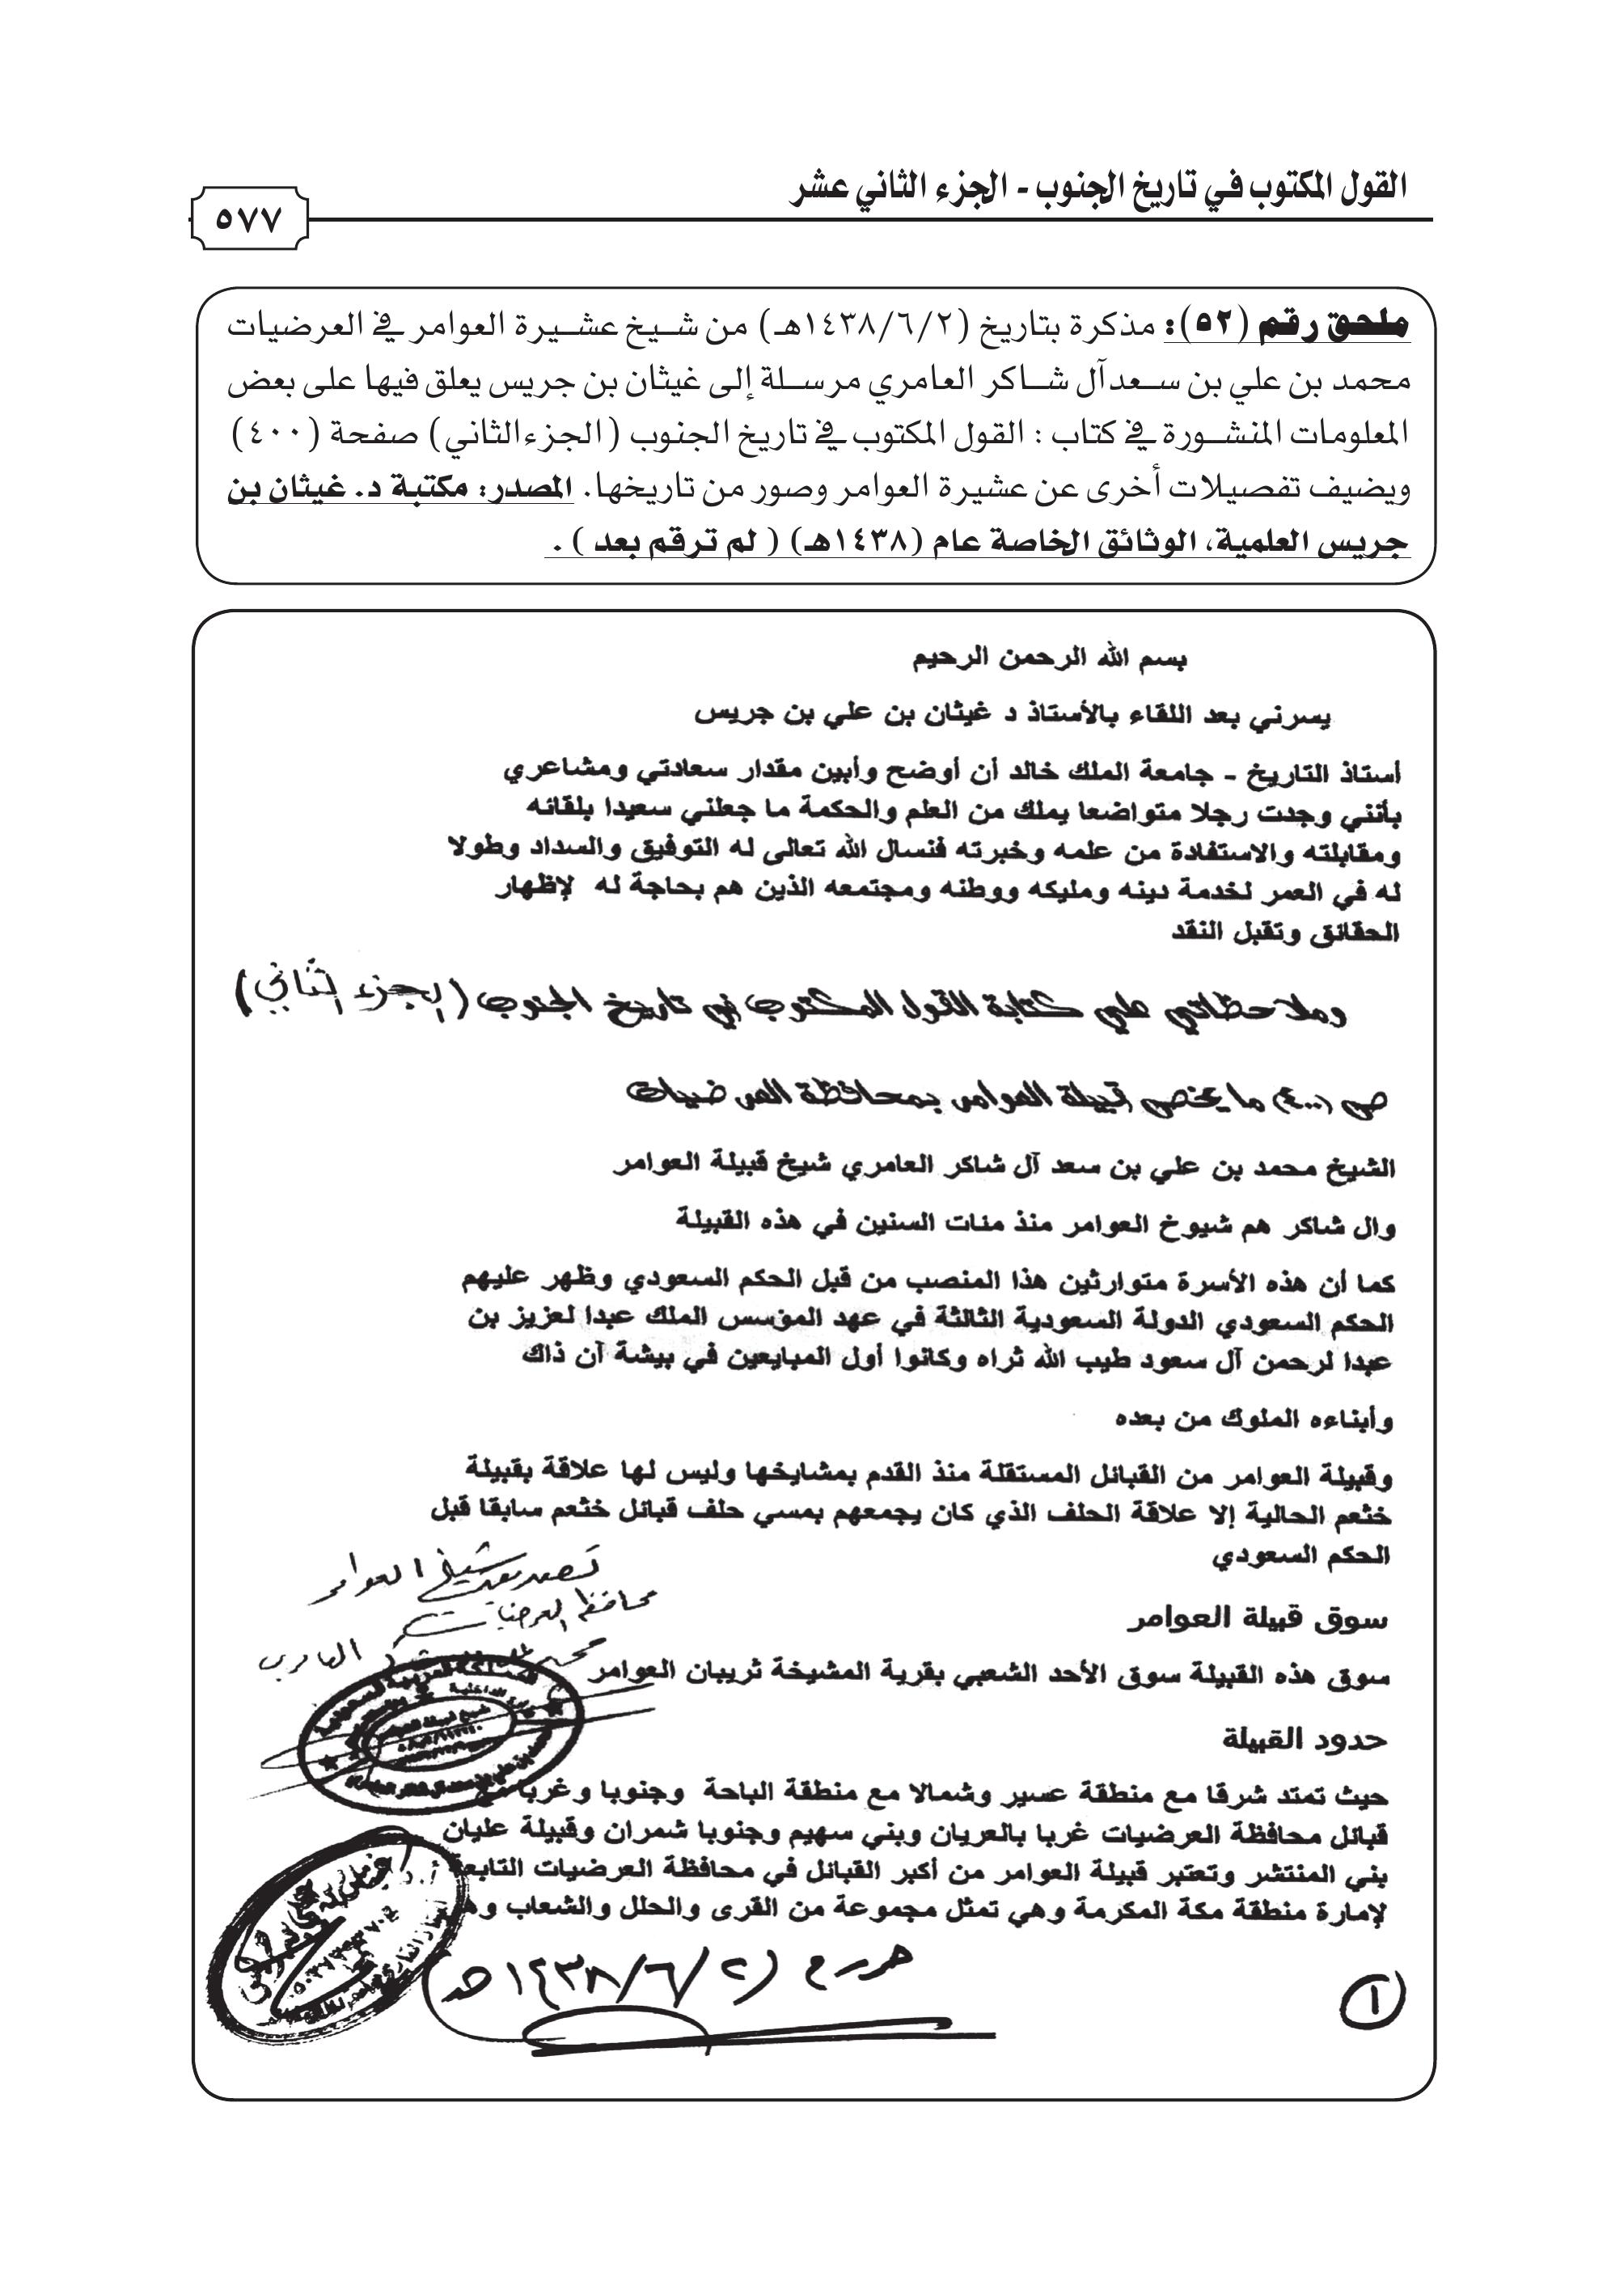 القول المكتوب في تاريخ الجنوب - الجزء الثاني عشر
٥٧٧
ملحق رقم (٥٢): مذكرة بتاريخ (١٤٣٨/٦/٢هـ) من شيخ عشيرة العوامر في العرضيات
محمد بن علي بن سعد آل شاكر العامري مرسلة إلى غيثان بن جريس يعلق فيها على بعض
المعلومات المنشورة في كتاب : القول المكتوب في تاريخ الجنوب (الجزء الثاني) صفحة (٤٠٠)
ويضيف تفصيلات أخرى عن عشيرة العوامر وصور من تاريخها. المصدر: مكتبة د. غيثان بن
جريس العلمية، الوثائق الخاصة عام (١٤٣٨هـ) ( لم ترقم بعد ) .
بسم الله الرحمن الرحيم
يسرني بعد اللقاء بالأستاذ د غيثان بن علي بن جريس
أستاذ التاريخ - جامعة الملك خالد أن أوضح وأبين مقدار سعادتي ومشاعري
بأنني وجدت رجلا متواضعا يملك من العلم والحكمة ما جعلني سعيدا بلقائه
ومقابلته والاستفادة من علمه وخبرته فنسال الله تعالى له التوفيق والسداد وطولا
له في العمر لخدمة دينه ومليكه ووطنه ومجتمعه الذين هم بحاجة له لإظهار
الحقائق وتقبل النقد
وملاحظاتي علي كتابة القول المكتوب في تاريخ الجنوب (الجزء الثاني)
ص (٤٠٠) ما يخص قبيلة العوامر بمحافظة العرضيات
الشيخ محمد بن علي بن سعد آل شاكر العامري شيخ قبيلة العوامر
وال شاكر هم شيوخ العوامر منذ مئات السنين في هذه القبيلة
كما أن هذه الأسرة متوارثين هذا المنصب من قبل الحكم السعودي وظهر عليهم
الحكم السعودي الدولة السعودية الثالثة في عهد المؤسس الملك عبدا لعزيز بن
عبدا لرحمن آل سعود طيب الله ثراه وكانوا أول المبايعين في بيشة آن ذاك
وأبناءه الملوك من بعده
وقبيلة العوامر من القبائل المستقلة منذ القدم بمشايخها وليس لها علاقة بقبيلة
خثعم الحالية إلا علاقة الحلف الذي كان يجمعهم بمسي حلف قبائل خثعم سابقا قبل
الحكم السعودي
شيخ العوامر
محافظة العرضيات
العامري
سوق قبيلة العوامر
سوق هذه القبيلة سوق الأحد الشعبي بقرية المشيخة ثريبان العوامر
حدود القبيلة
حيث تمتد شرقا مع منطقة عسير وشمالا مع منطقة الباحة وجنوبا وغربا مع
قبائل محافظة العرضيات غربا بالعريان وبني سهيم وجنوبا شمران وقبيلة عليان
بني المنتشر وتعتبر قبيلة العوامر من أكبر القبائل في محافظة العرضيات التابعة
لإمارة منطقة مكة المكرمة وهي تمثل مجموعة من القرى والحلل والشعاب
حرر ع (٢ /٦/ ١٤٣٨ هـ
١